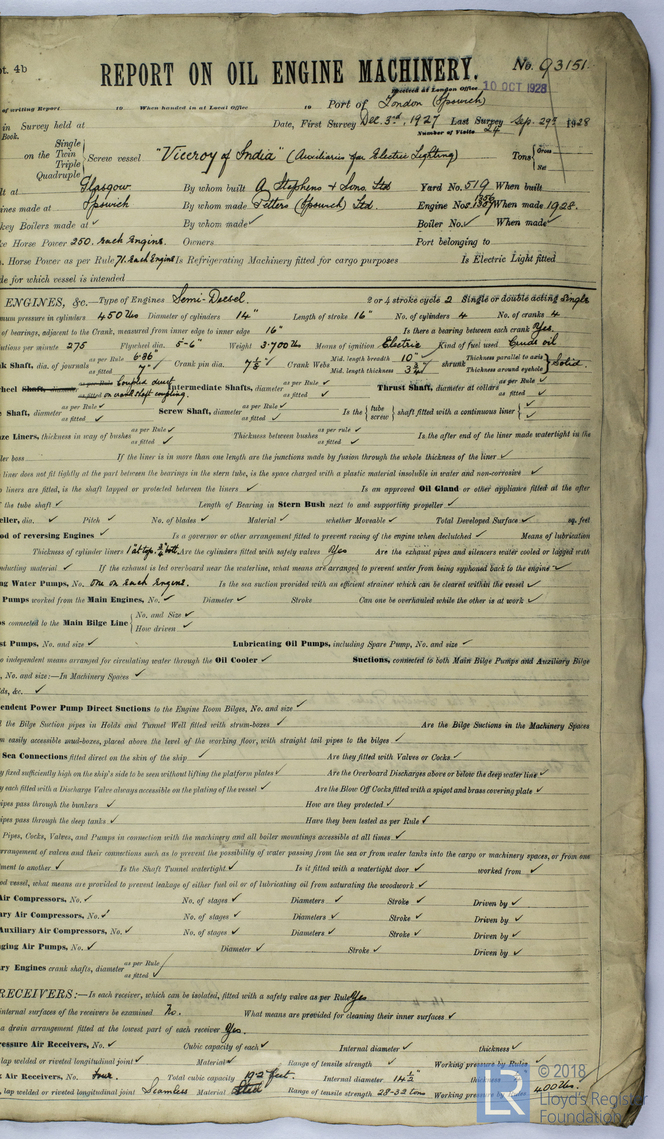 pt. 4b
REPORT ON OIL ENGINE MACHINERY.
No. 93151
Received at London Office 10 OCT 1928
of writing Report 19 When handed in at Local Office 19 Port of London (Ipswich)
in Survey held at Date, First Survey Dec. 3rd, 1927 Last Survey Sep. 29th 1928
Book. Number of Visits 24
on the Single Twin Triple Quadruple Screw vessel "Viceroy of India" (Auxiliaries for Electric Lighting) Tons Gross Net
lt at Glasgow By whom built A. Stephens & Sons Ltd Yard No. 519 When built
ines made at Ipswich By whom made Petters (Ipswich) Ltd. Engine Nos. When made 1928.
key Boilers made at ✓ By whom made ✓ Boiler No. ✓ When made ✓
Horse Power 250. each Engine. Owners Port belonging to
Horse Power as per Rule 71. each Engine Is Refrigerating Machinery fitted for cargo purposes Is Electric Light fitted
de for which vessel is intended
ENGINES, &c.—Type of Engines Semi-Diesel. 2 or 4 stroke cycle 2 Single or double acting Single
mum pressure in cylinders 450 lbs Diameter of cylinders 14" Length of stroke 16" No. of cylinders 4 No. of cranks 4.
of bearings, adjacent to the Crank, measured from inner edge to inner edge 16" Is there a bearing between each crank Yes.
lutions per minute 275 Flywheel dia. 5-6" Weight 3.700 lbs Means of ignition Electric Kind of fuel used Crude oil
k Shaft, dia. of journals as per Rule 6.86" as fitted 7" Crank pin dia. 7½" Crank Webs Mid. length breadth 10" Mid. length thickness shrunk Thickness parallel to axis Thickness around eyehole Solid.
heel Shaft, diameter as per Rule as fitted Coupled direct on crank shaft coupling. Intermediate Shafts, diameter as per Rule ✓ as fitted ✓ Thrust Shaft, diameter at collars as per Rule ✓ as fitted ✓
e Shaft, diameter as per Rule ✓ as fitted ✓ Screw Shaft, diameter as per Rule ✓ as fitted ✓ Is the tube screw shaft fitted with a continuous liner ✓
ze Liners, thickness in way of bushes as per rule ✓ as fitted ✓ Thickness between bushes as per rule ✓ as fitted ✓ Is the after end of the liner made watertight in the
ler boss If the liner is in more than one length are the junctions made by fusion through the whole thickness of the liner ✓
liner does not fit tightly at the part between the bearings in the stern tube, is the space charged with a plastic material insoluble in water and non-corrosive ✓
liners are fitted, is the shaft lapped or protected between the liners ✓ Is an approved Oil Gland or other appliance fitted at the after
the tube shaft ✓ Length of Bearing in Stern Bush next to and supporting propeller ✓
eller, dia. ✓ Pitch ✓ No. of blades ✓ Material ✓ whether Moveable ✓ Total Developed Surface ✓ sq. feet
od of reversing Engines ✓ Is a governor or other arrangement fitted to prevent racing of the engine when declutched ✓ Means of lubrication
Thickness of cylinder liners 1" at top. ¾" bott. Are the cylinders fitted with safety valves Yes Are the exhaust pipes and silencers water cooled or lagged with
nducting material ✓ If the exhaust is led overboard near the waterline, what means are arranged to prevent water from being syphoned back to the engine ✓
ng Water Pumps, No. One on each engine. Is the sea suction provided with an efficient strainer which can be cleared within the vessel ✓
Pumps worked from the Main Engines, No. ✓ Diameter ✓ Stroke Can one be overhauled while the other is at work ✓
s connected to the Main Bilge Line No. and Size ✓ How driven ✓
st Pumps, No. and size ✓ Lubricating Oil Pumps, including Spare Pump, No. and size ✓
o independent means arranged for circulating water through the Oil Cooler ✓ Suctions, connected to both Main Bilge Pumps and Auxiliary Bilge
, No. and size:—In Machinery Spaces ✓
lds, &c. ✓
endent Power Pump Direct Suctions to the Engine Room Bilges, No. and size ✓
l the Bilge Suction pipes in Holds and Tunnel Well fitted with strum-boxes ✓ Are the Bilge Suctions in the Machinery Spaces
m easily accessible mud-boxes, placed above the level of the working floor, with straight tail pipes to the bilges ✓
Sea Connections fitted direct on the skin of the ship ✓ Are they fitted with Valves or Cocks ✓
y fixed sufficiently high on the ship's side to be seen without lifting the platform plates ✓ Are the Overboard Discharges above or below the deep water line ✓
y each fitted with a Discharge Valve always accessible on the plating of the vessel ✓ Are the Blow Off Cocks fitted with a spigot and brass covering plate ✓
ipes pass through the bunkers ✓ How are they protected ✓
ipes pass through the deep tanks ✓ Have they been tested as per Rule ✓
Pipes, Cocks, Valves, and Pumps in connection with the machinery and all boiler mountings accessible at all times ✓
rrangement of valves and their connections such as to prevent the possibility of water passing from the sea or from water tanks into the cargo or machinery spaces, or from one
tment to another ✓ Is the Shaft Tunnel watertight ✓ Is it fitted with a watertight door ✓ worked from ✓
od vessel, what means are provided to prevent leakage of either fuel oil or of lubricating oil from saturating the woodwork ✓
Air Compressors, No. ✓ No. of stages ✓ Diameters ✓ Stroke ✓ Driven by ✓
ary Air Compressors, No. ✓ No. of stages ✓ Diameters ✓ Stroke ✓ Driven by ✓
Auxiliary Air Compressors, No. ✓ No. of stages ✓ Diameters ✓ Stroke ✓ Driven by ✓
nging Air Pumps, No. ✓ Diameter ✓ Stroke ✓ Driven by ✓
ry Engines crank shafts, diameter as per Rule as fitted ✓
RECEIVERS:—Is each receiver, which can be isolated, fitted with a safety valve as per Rule Yes
internal surfaces of the receivers be examined No. What means are provided for cleaning their inner surfaces ✓
a drain arrangement fitted at the lowest part of each receiver Yes.
ressure Air Receivers, No. ✓ Cubic capacity of each ✓ Internal diameter ✓ thickness ✓
lap welded or riveted longitudinal joint ✓ Material ✓ Range of tensile strength ✓ Working pressure by Rules ✓
Air Receivers, No. Four. Total cubic capacity 19.2 feet. Internal diameter 14½" thickness
lap welded or riveted longitudinal joint Seamless Material Steel Range of tensile strength 28-32 tons Working pressure by Rules 400 lbs.
LR © 2018
Lloyd's Register
Foundation